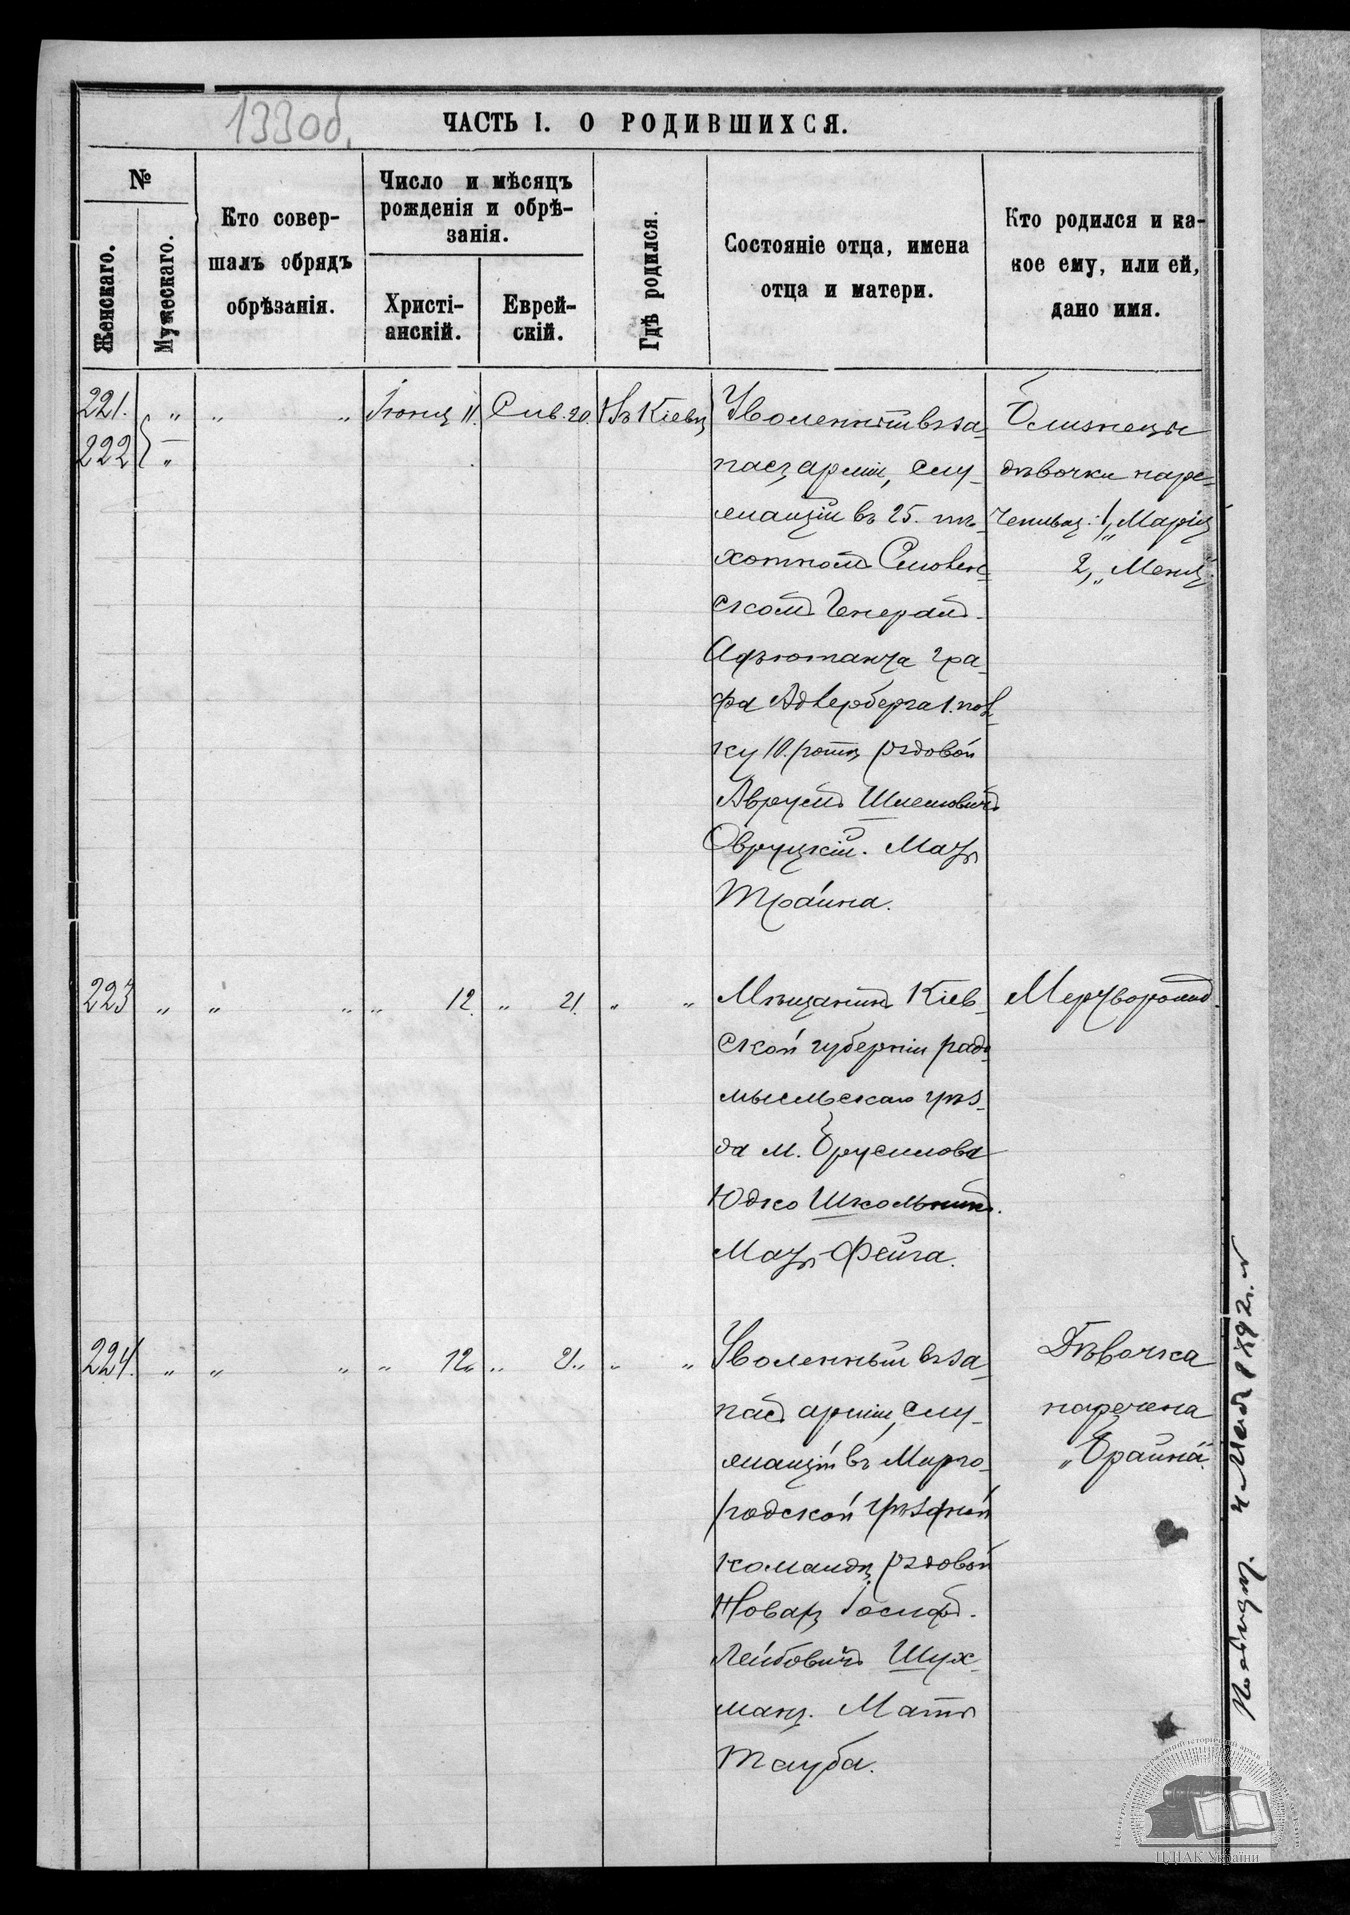 133об.
ЧАСТЬ I. О РОДИВШИХСЯ.
№
Женскаго.
Мужескаго.
Кто совер-
шалъ обрядъ
обрѣзанія.
Число и мѣсяцъ
рожденія и обрѣ-
занія.
Христі-
анскій.
Еврей-
скій.
Гдѣ родился.
Состояніе отца, имена
отца и матери.
Кто родился и ка-
кое ему, или ей,
дано имя.
221. „ „ „ Іюня 11. Сив. 20. Въ Кіевѣ
222 „
Уволенный въ за-
пасъ арміи, слу-
жащій въ 25. пѣ-
хотномъ Смолен-
скомъ Генералъ-
Адъютанта гра-
фа Адлерберга 1. пол-
ку 10. роты рядовой
Аврумъ Шлемовичъ
Овруцкій. Мать
Траина.
Близнецы
дѣвочки наре-
чены: 1, „Марія
2, „Меня“.
223 „ „ „ „ 12. „ 21. „ „
Мѣщанинъ Кіев-
ской губерніи радо-
мысльскаго уѣз-
да м. Брусилова
Юдко Школьникъ.
Мать Фейга.
Мертворожд.
224. „ „ „ „ 12. „ 21. „ „
Уволенный въ за-
пасъ арміи, слу-
жащій въ Мирго-
родской уѣздной
командѣ рядовой
Іосифъ-
Лейбовичъ Шух-
манъ. Мать
Тауба.
Дѣвочка
наречена
„Браина“
1892 г.
ЦДІАК України